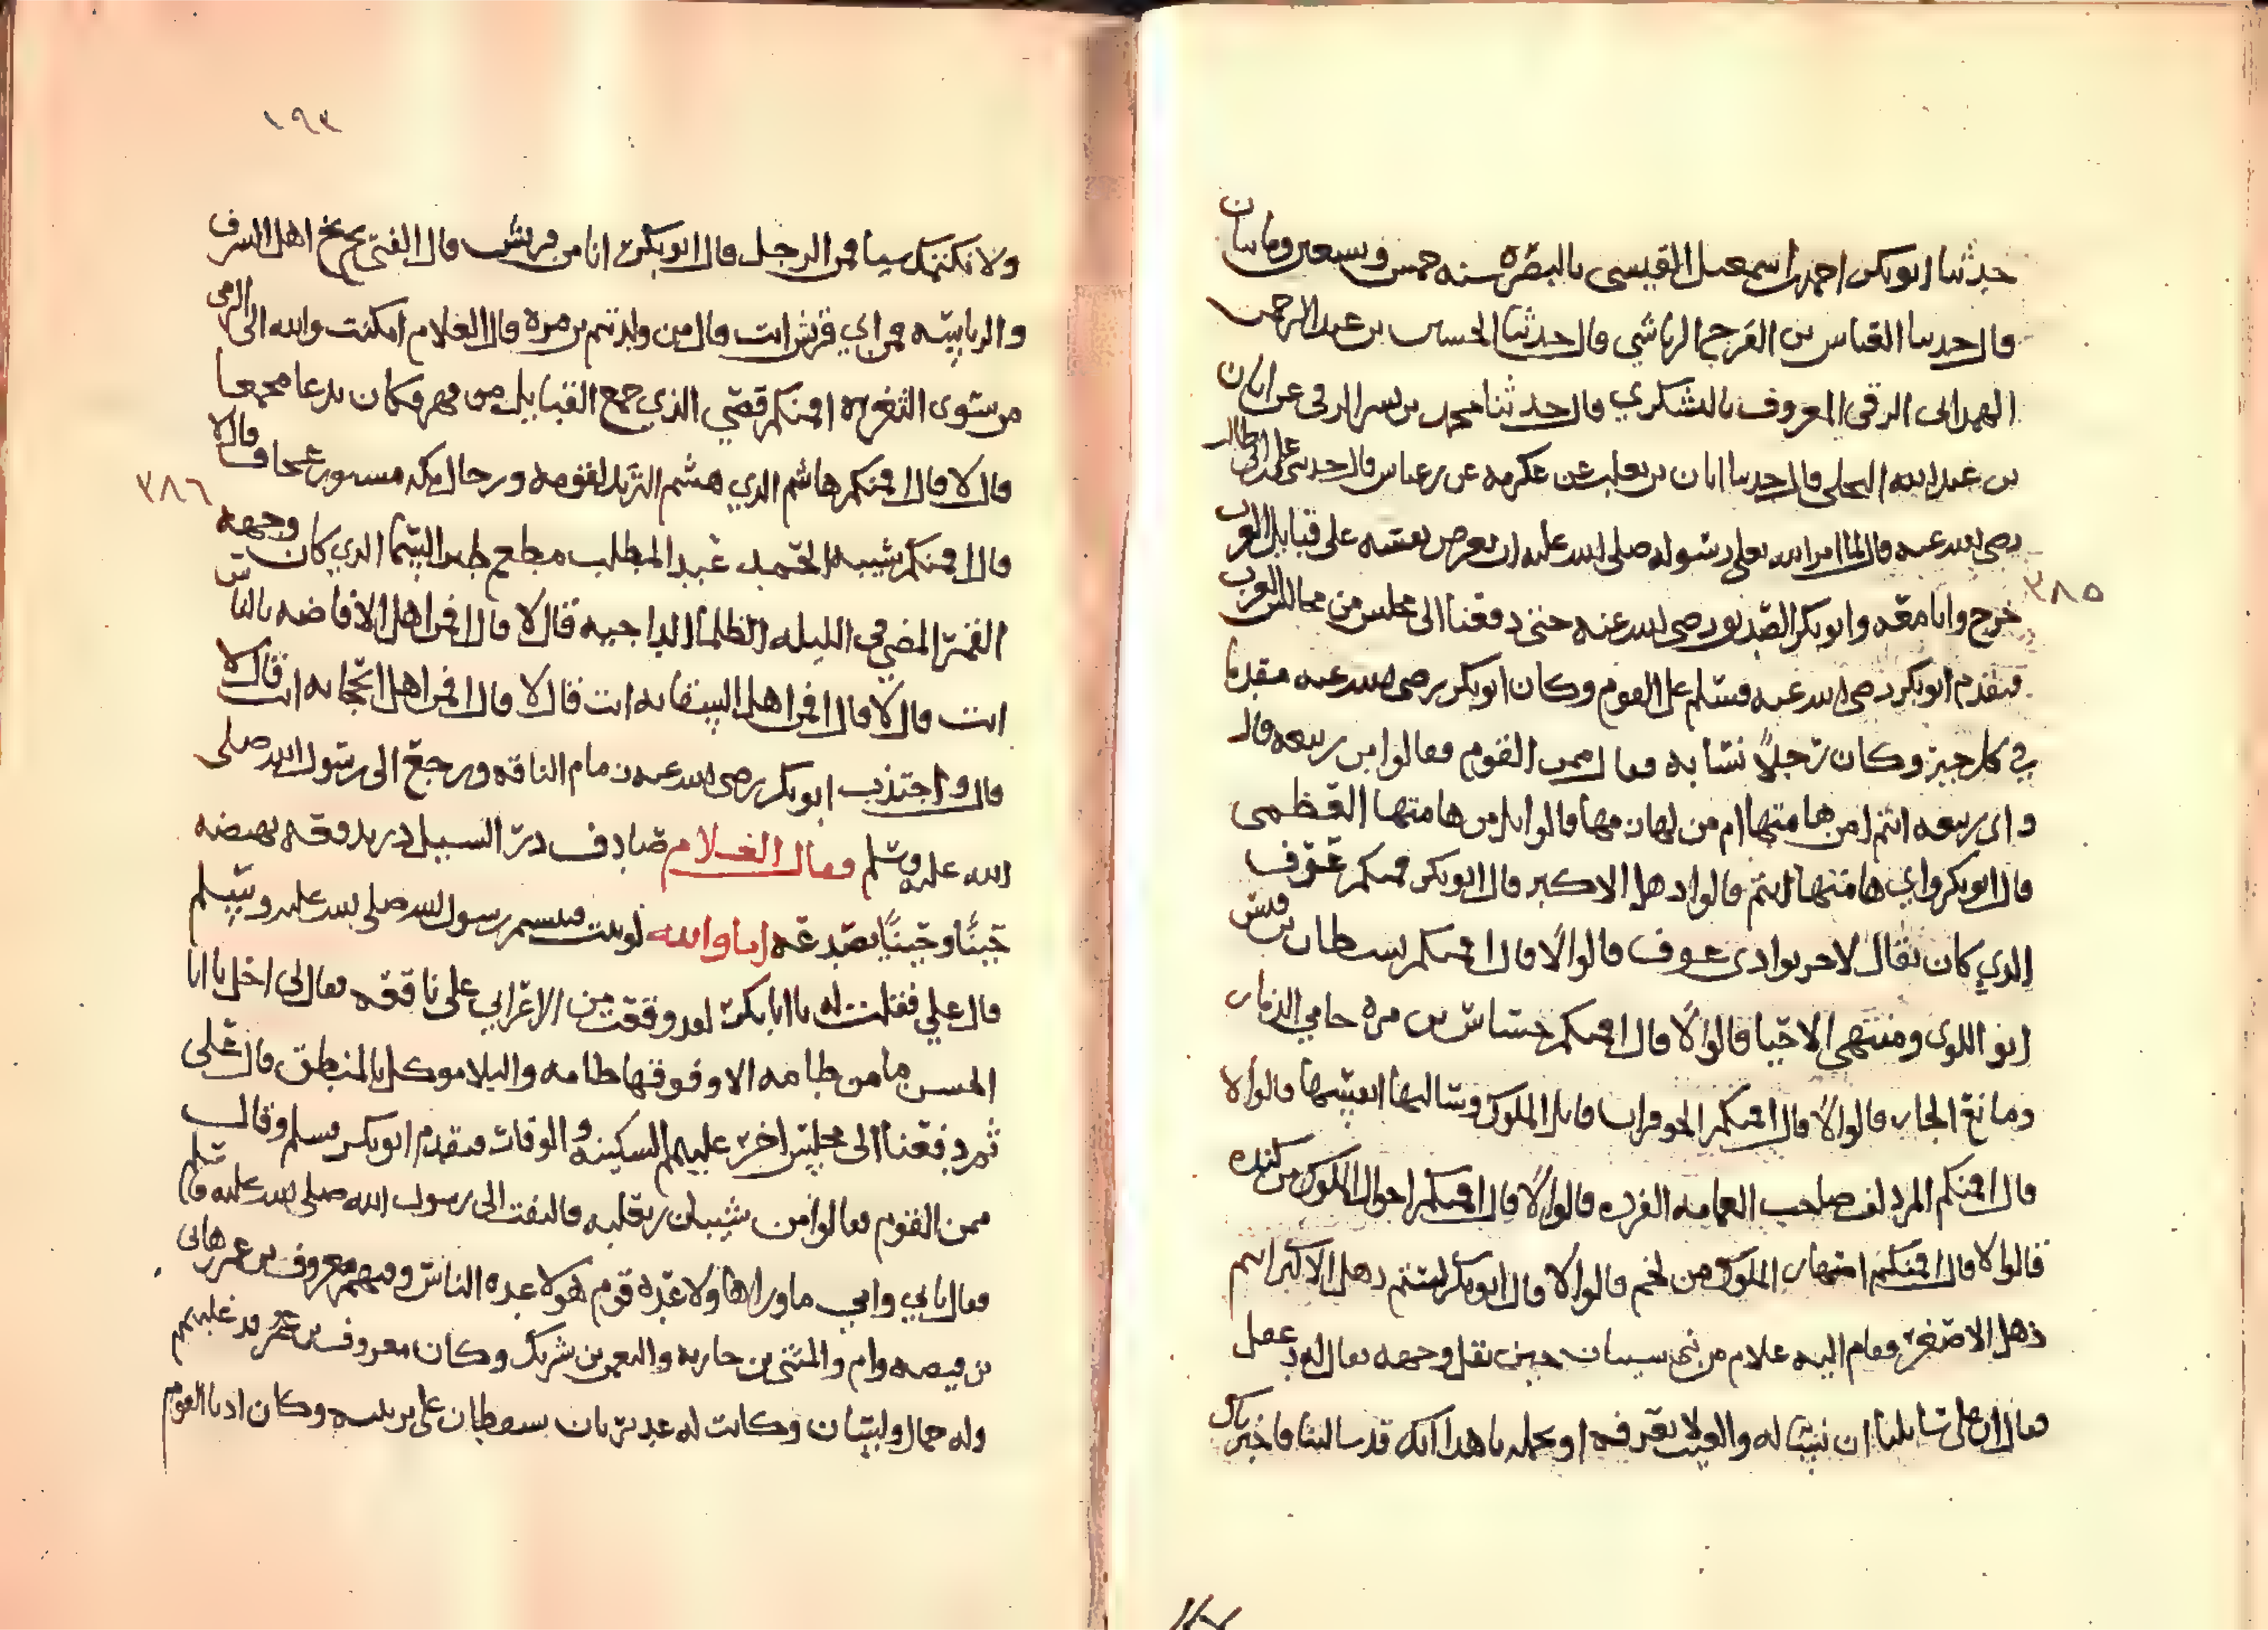 حدثنا ابوبكر احمد بن اسمعيل القيسي بالبصره سنه خمس وسبعين ومايتان
قال حدثنا العباس بن الفرج الرياشي قال حدثنا الحسين بن عبد الرحمن
الهمداني الرقي المعروف باليشكري قال حدثنا محمد بن بسر الرقي عن ابان
بن عبد الله البجلي قال حدثنا ابان بن تغلب عن عكرمه عن بن عباس قال حدثني علي بن ابي طالب
رضي الله عنه قال لما امر الله تعلى رسوله صلى الله عليه ان يعرض نفسه على قبايل العرب
٣٨٥
خرج وانا معه وابوبكر الصديق رضي الله عنه حتى دفعنا الى مجلس من مجالس العرب
فتقدم ابوبكر رضي الله عنه فسلم على القوم وكان ابوبكر رضي الله عنه مقدما
في كل خير وكان رجلا نسابه فقال ممن القوم فقالوا من ربيعه قال
واي ربيعه انتم امن هامتها ام من لهازمها قالوا بل من هامتها العظمى
قال ابوبكر واي هامتها انتم قالوا ذهل الاكبر قال ابوبكر فمنكم عوف
الذي كان يقال لا حر بوادي عوف قالوا لا قال افمنكم بسطام بن قيس
ابو اللوى ومنتهى الاحيا قالوا لا قال افمنكم جساس بن مره حامي الذمار
ومانع الجار قالوا لا قال افمنكم الحوفزان قاتل الملوك وسالبها انفسها قالوا لا
قال افمنكم المزدلف صاحب العمامه الفرده قالوا لا قال افمنكم اخوال الملوك من كنده
قالوا لا قال افمنكم اصهار الملوك من لخم قالوا لا قال ابوبكر لستم ذهل الاكبر انتم
ذهل الاصغر فقام اليه غلام من بني سيبان حين بقل وجهه يقال له دغفل
فقال ان على سايلنا ان نسأله والعبء لا نعرفه او نحمله يا هذا انك قد سالتنا فاخبرناك
١٩٣
ولا نكتمك سيا فمن الرجل قال ابوبكر انا من قريش قال الفتى بخ بخ اهل الشرف
والرياسه فمن اي قريش انت قال من ولد تيم بن مره قال الغلام امكنت والله الرامي
من سوى الثغره افمنكم قصي الذي جمع القبايل من فهر وكان يدعا مجمعا
قال لا قال افمنكم هاشم الذي هشم الثريد لقومه ورجال مكه مسنتون عجاف قال لا
٣٨٦
قال افمنكم شيبه الحمد عبد المطلب مطعم طير السما الذي كان وجهه
القمر المضي في الليله الظلما الداجيه قال لا قال افمن اهل الافاضه بالناس
انت قال لا قال افمن اهل السقايه انت قال لا قال افمن اهل الحجابه انت قال لا
قال واجتذب ابوبكر رضي الله عنه زمام الناقه ورجع الى رسول الله صلى
الله عليه وسلم فقال الغلام صادف در السيل در يدفعه يهضبه
حينا وحينا يصدعه اما والله لو ثبت فتبسم رسول الله صلى الله عليه وسلم
قال علي فقلت له يا ابا بكر لقد وقعت من الاعرابي على باقعه فقال لي اجل يا ابا
الحسن ما من طامه الا وفوقها طامه والبلا موكل بالمنطق قال علي
ثم دفعنا الى مجلس اخر عليهم السكينه والوقار فتقدم ابوبكر فسلم وقال
ممن القوم فقالوا من شيبان بن ثعلبه فالتفت الى رسول الله صلى الله عليه وسلم
فقال بابي وامي ما ورا هاولا عده قوم هولا عده الناس وفيهم مفروق بن عمر وهاني
بن قبيصه والمثنى بن حارثه والنعمن بن شريك وكان مفروق بن عمر قد غلبهم
وله جمال ولسان وكانت له غديرتان يسقطان على تريبته وكان ادنا القوم